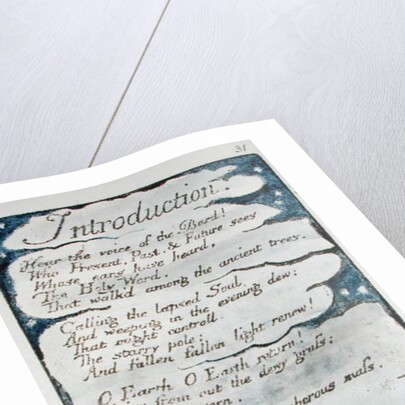 31
Introduction.
Hear the voice of the Bard!
Who Present, Past, & Future sees
Whose ears have heard,
The Holy Word,
That walk'd among the ancient trees.
Calling the lapsed Soul
And weeping in the evening dew:
That might controll.
The starry pole;
And fallen fallen light renew!
O Earth O Earth return!
from out the dewy grass;
rn.
berous mass.